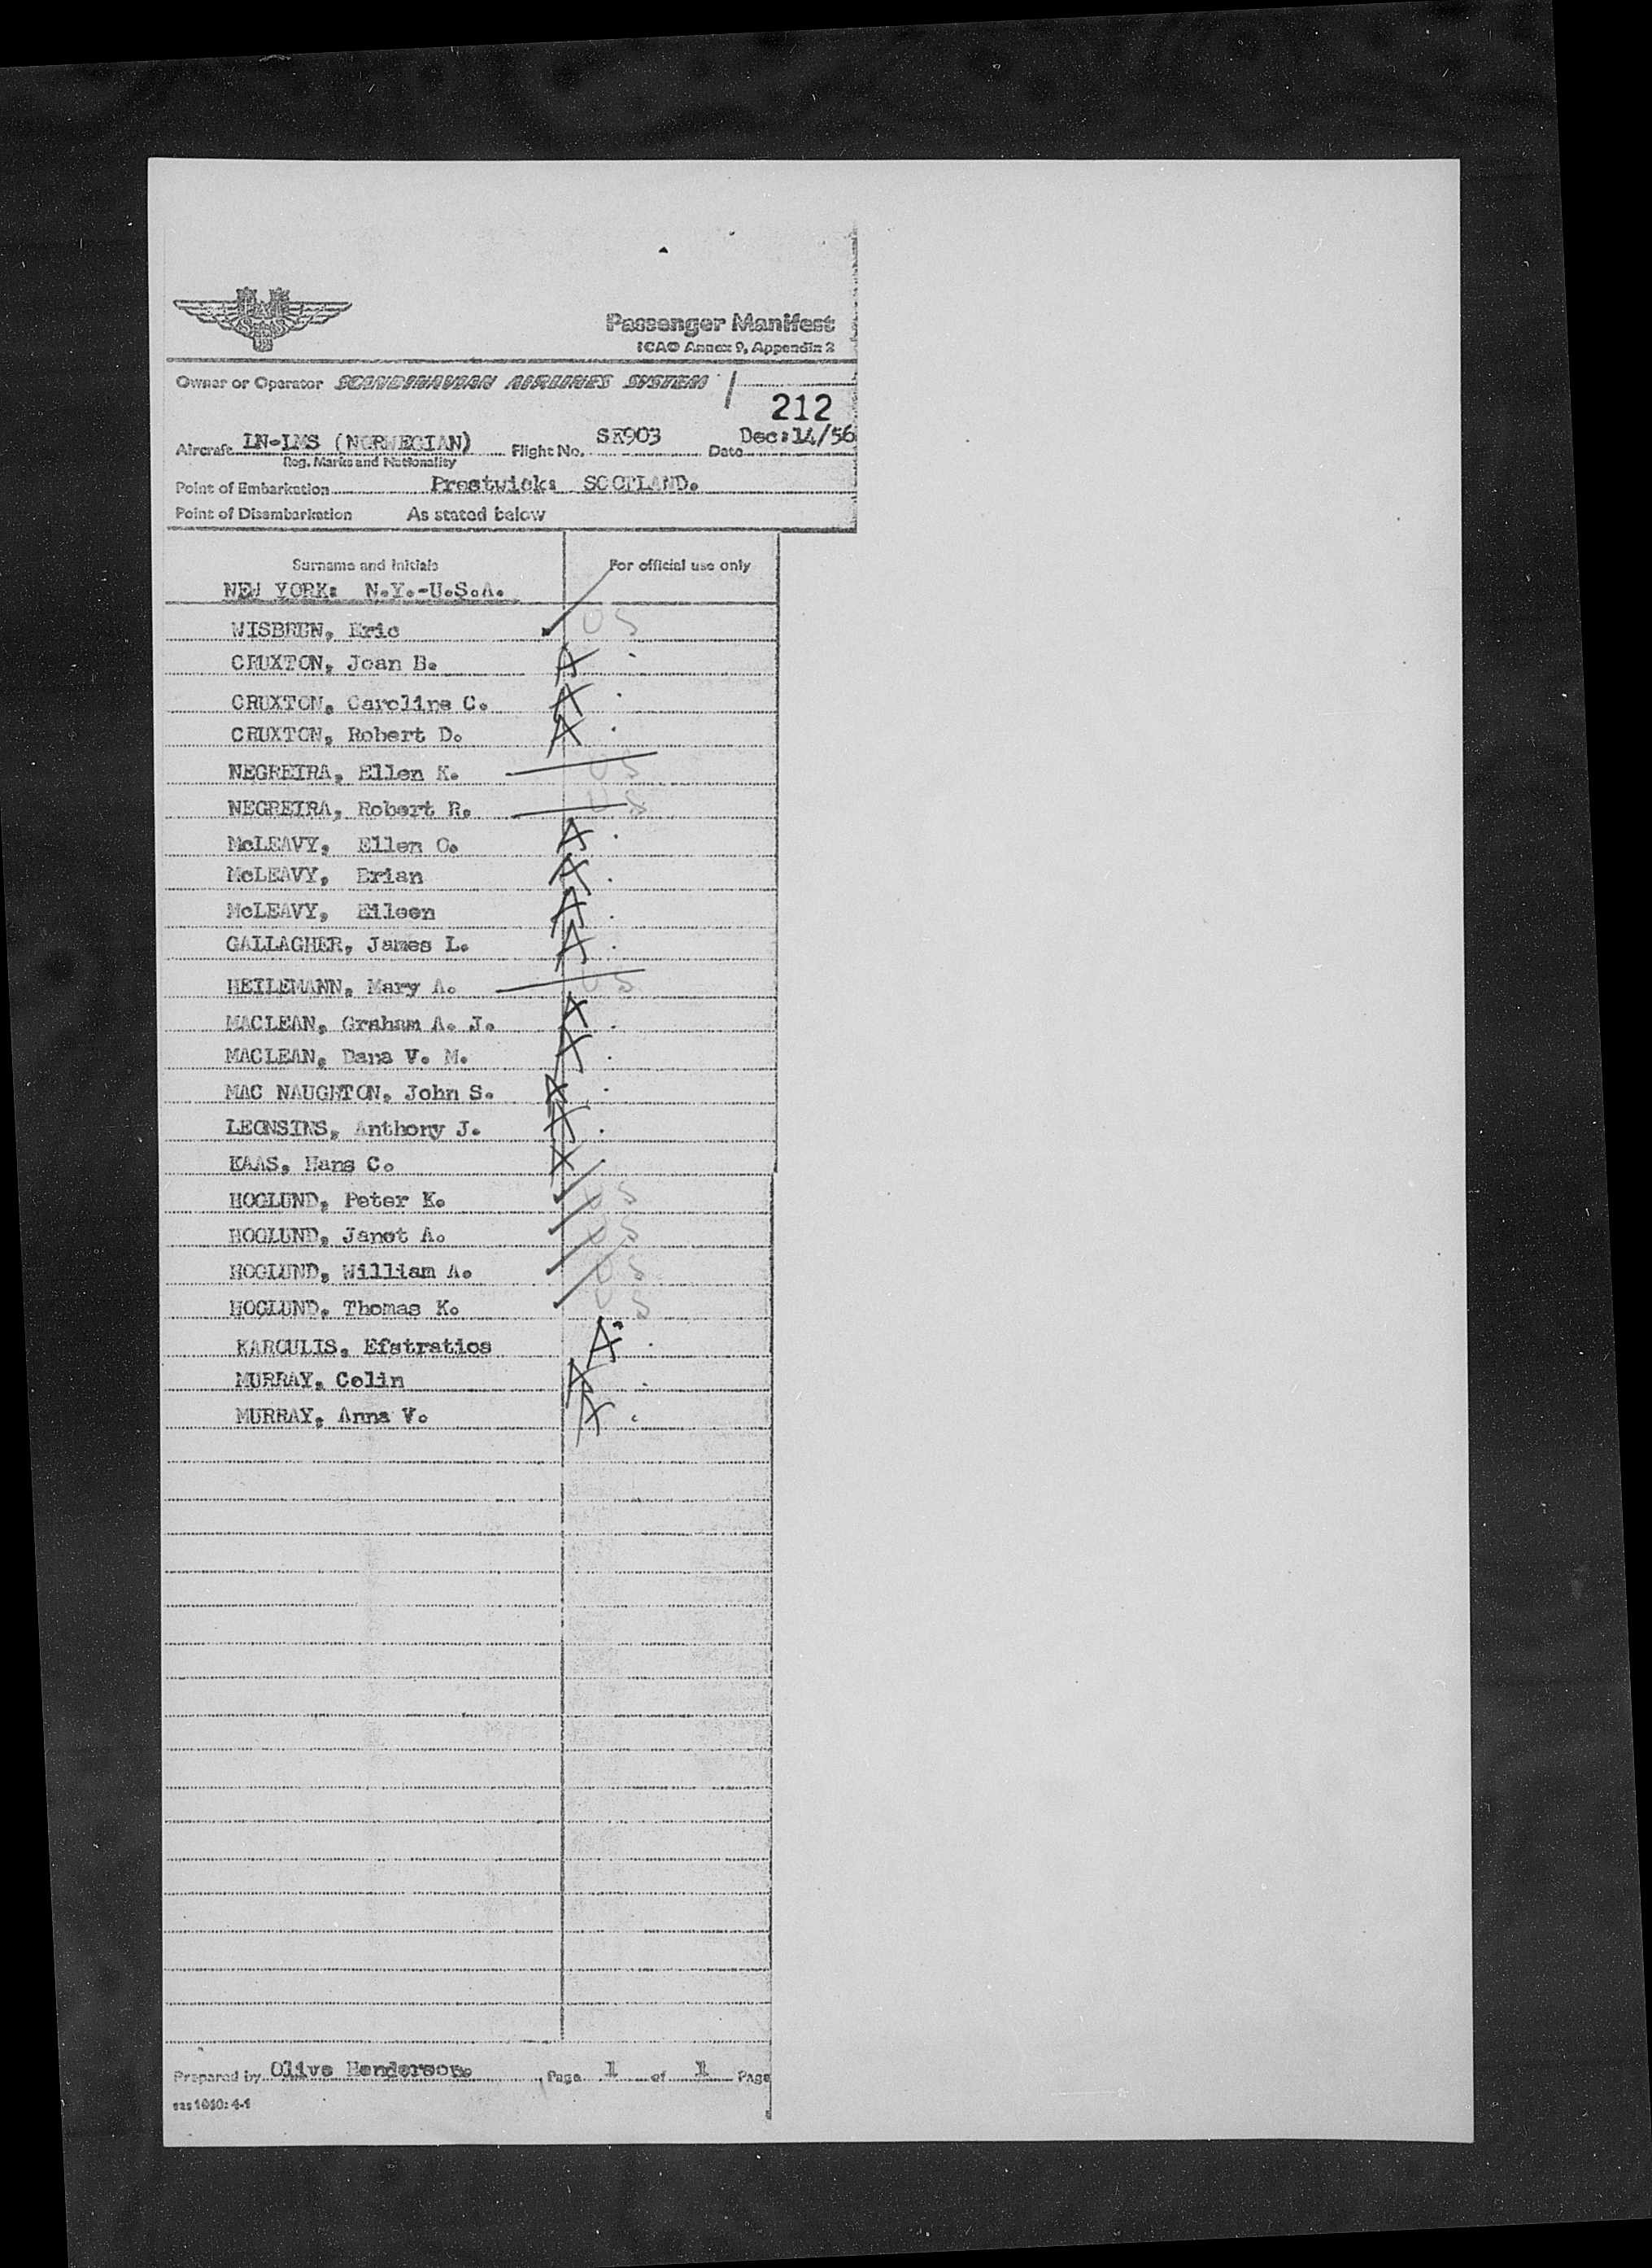 SAS
Passenger Manifest
ICAO Annex 9, Appendix 2
Owner or Operator SCANDINAVIAN AIRLINES SYSTEM
212
Aircraft LN-LMS (NORWEGIAN) Flight No. SK903 Date Dec:14/56
Reg. Marks and Nationality
Point of Embarkation Prestwick: SCOTLAND.
Point of Disembarkation As stated below
Surname and Initials For official use only
NEW YORK: N.Y.-U.S.A.
WISBRUN, Eric US
CRUXTON, Joan B. A
CRUXTON, Caroline C. A
CRUXTON, Robert D. A
NEGREIRA, Ellen K. US
NEGREIRA, Robert R. US
McLEAVY, Ellen C. A
McLEAVY, Brian A
McLEAVY, Eileen A
GALLAGHER, James L. A
HEILEMANN, Mary A. US
MACLEAN, Graham A. J. A
MACLEAN, Dana V. M. A
MAC NAUGHTON, John S. A
LEONSINS, Anthony J. A
KAAS, Hans C. A
HOGLUND, Peter K. US
HOGLUND, Janet A. US
HOGLUND, William A. US
HOGLUND, Thomas K. US
KARCULIS, Efstratios A
MURRAY, Colin A
MURRAY, Anna V. A
Prepared by Olive Henderson. Page 1 of 1 Page